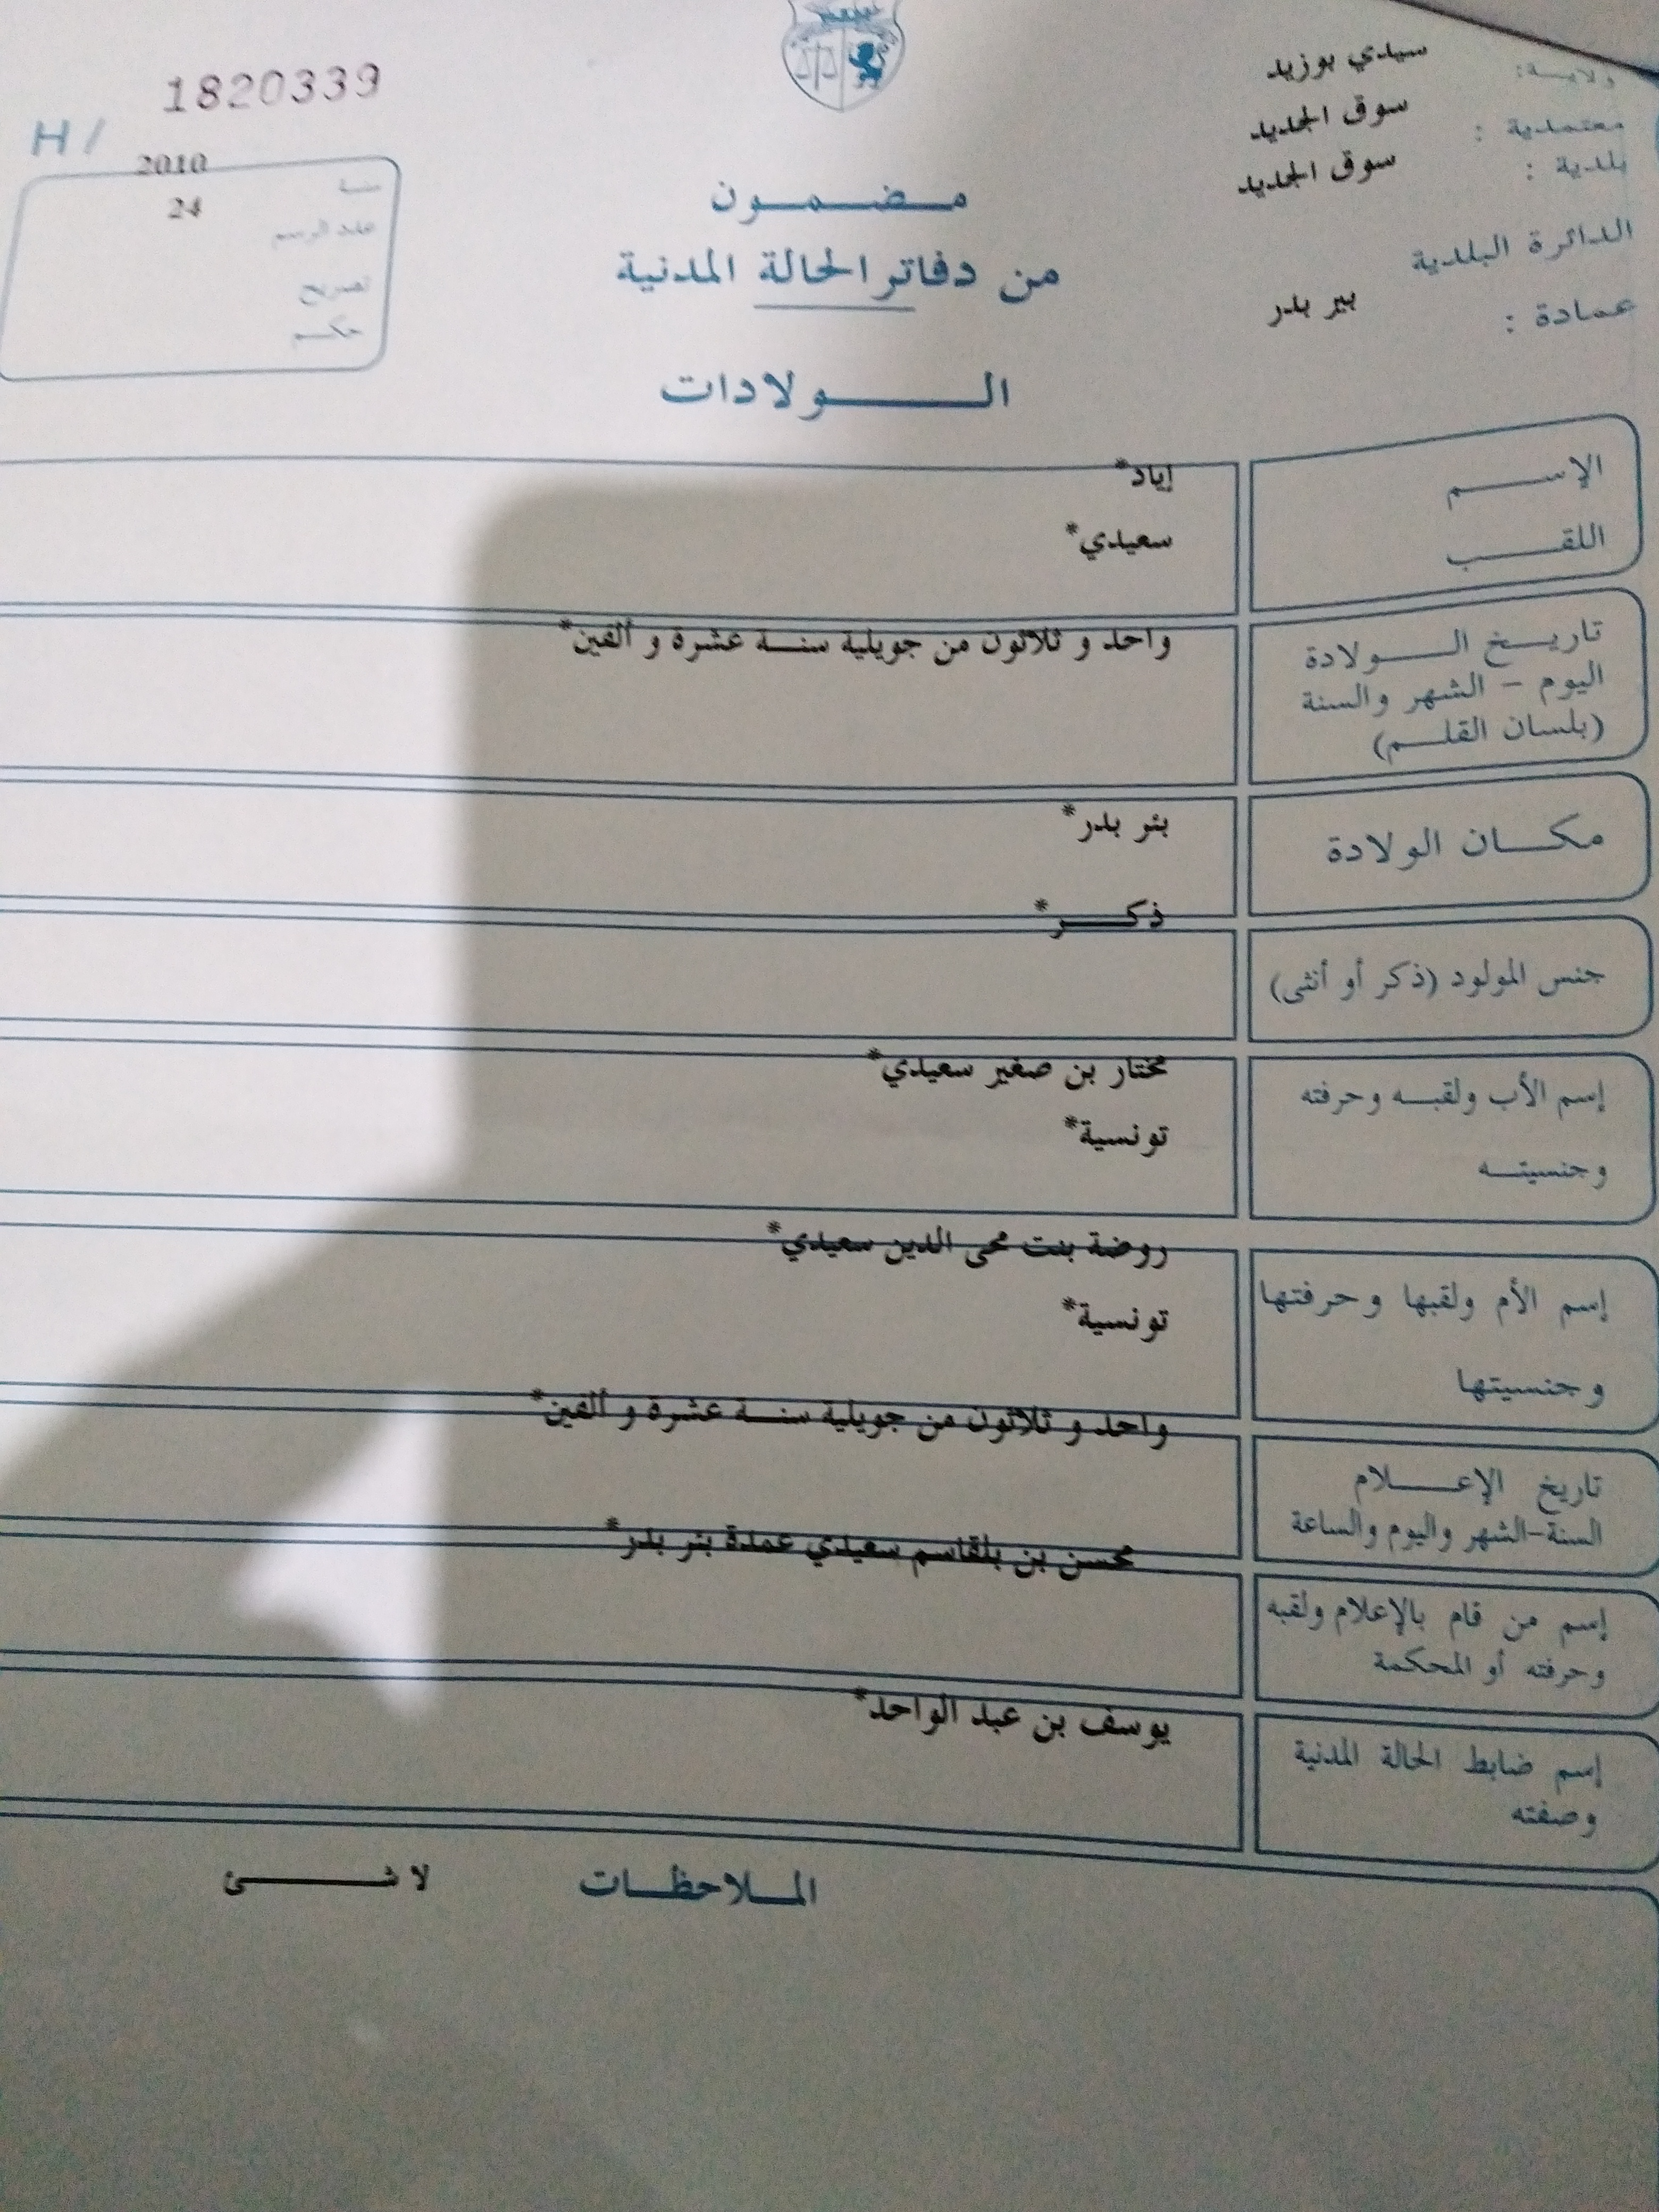 ولاية: سيدي بوزيد
معتمدية : سوق الجديد
بلدية : سوق الجديد
الدائرة البلدية
عمادة : بير بدر
1820339
H /
2010
سنة
24
عدد الرسم
تصريح
حكم
مضمون
من دفاتر الحالة المدنية
الولادات
الإسم إياد*
اللقب سعيدي*
تاريخ الولادة واحد و ثلاثون من جويلية سنة عشرة و ألفين*
اليوم – الشهر والسنة
(بلسان القلم)
مكان الولادة بئر بدر*
ذكر*
جنس المولود (ذكر أو أنثى)
مختار بن صغير سعيدي*
إسم الأب ولقبه وحرفته
تونسية*
وجنسيته
روضة بنت محى الدين سعيدي*
إسم الأم ولقبها وحرفتها
تونسية*
وجنسيتها
واحد و ثلاثون من جويلية سنة عشرة و ألفين*
تاريخ الإعلام
السنة-الشهر واليوم والساعة
محسن بن بلقاسم سعيدي عمدة بئر بدر*
إسم من قام بالإعلام ولقبه
وحرفته أو المحكمة
يوسف بن عبد الواحد*
إسم ضابط الحالة المدنية
وصفته
الملاحظات لا شئ